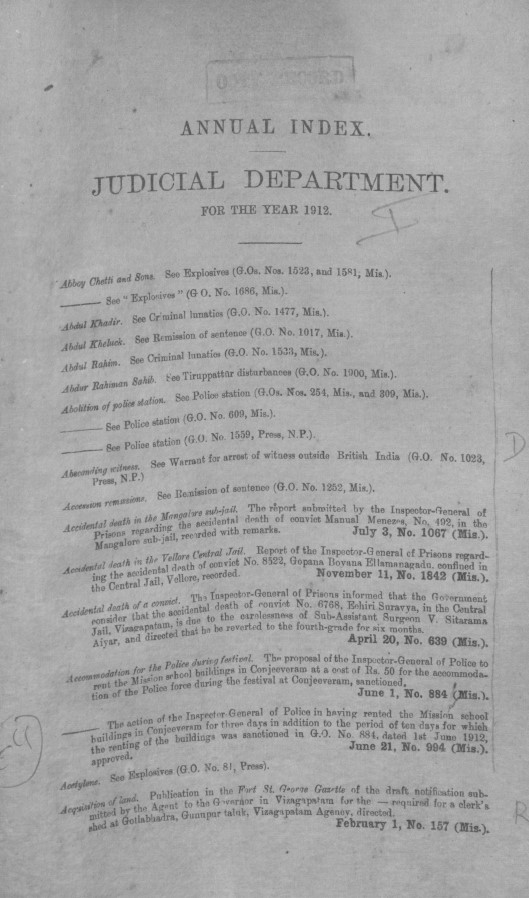 ANNUAL INDEX.
JUDICIAL DEPARTMENT.
FOR THE YEAR 1912.
Abboy Chetti and Sons. See Explosives (G.Os. Nos. 1523, and 1581, Mis.).
——— See "Explosives" (G O. No. 1686, Mis.).
Abdul Khadir. See Criminal lunatics (G.O. No. 1477, Mis.).
Abdul Kheluck. See Remission of sentence (G.O. No. 1017, Mis.).
Abdul Rahim. See Criminal lunatics (G.O. No. 1533, Mis.).
Abdur Rahiman Sahib. See Tiruppattúr disturbances (G.O. No. 1900, Mis.).
Abolition of police station. See Police station (G.Os. Nos. 254, Mis., and 309, Mis.).
——— See Police station (G.O. No. 609, Mis.).
——— See Police station (G.O. No. 1559, Press, N.P.).
Absconding witness. See Warrant for arrest of witness outside British India (G.O. No. 1023,
Press, N.P.)
Accession remissions. See Remission of sentence (G.O. No. 1252, Mis.).
Accidental death in the Mangalore sub-jail. The report submitted by the Inspector-General of
Prisons regarding the accidental death of convict Manual Menezes, No. 492, in the
Mangalore sub-jail, recorded with remarks. July 3, No. 1067 (Mis.).
Accidental death in the Vellore Central Jail. Report of the Inspector-General of Prisons regard-
ing the accidental death of convict No. 8522, Gopana Boyana Ellamanagadu, confined in
the Central Jail, Vellore, recorded. November 11, No. 1842 (Mis.).
Accidental death of a convict. The Inspector-General of Prisons informed that the Government
consider that the accidental death of convict No. 6768, Echiri Suravya, in the Central
Jail, Vizagapatam, is due to the carelessness of Sub-Assistant Surgeon V. Sitarama
Aiyar, and directed that he be reverted to the fourth-grade for six months.
April 20, No. 639 (Mis.).
Accommodation for the Police during festival. The proposal of the Inspector-General of Police to
rent the Mission school buildings in Conjeeveram at a cost of Rs. 50 for the accommoda-
tion of the Police force during the festival at Conjeeveram, sanctioned.
June 1, No. 884 (Mis.).
——— The action of the Inspector-General of Police in having rented the Mission school
buildings in Conjeeveram for three days in addition to the period of ten days for which
the renting of the buildings was sanctioned in G.O. No. 884, dated 1st June 1912,
approved. June 21, No. 994 (Mis.).
Acetylene. See Explosives (G.O. No. 81, Press).
Acquisition of land. Publication in the Fort St. George Gazette of the draft notification sub-
mitted by the Agent to the Governor in Vizagapatam for the — required for a clerk's
shed at Gotlabhadra, Gunupur taluk, Vizagapatam Agency, directed.
February 1, No. 157 (Mis.).
D
R